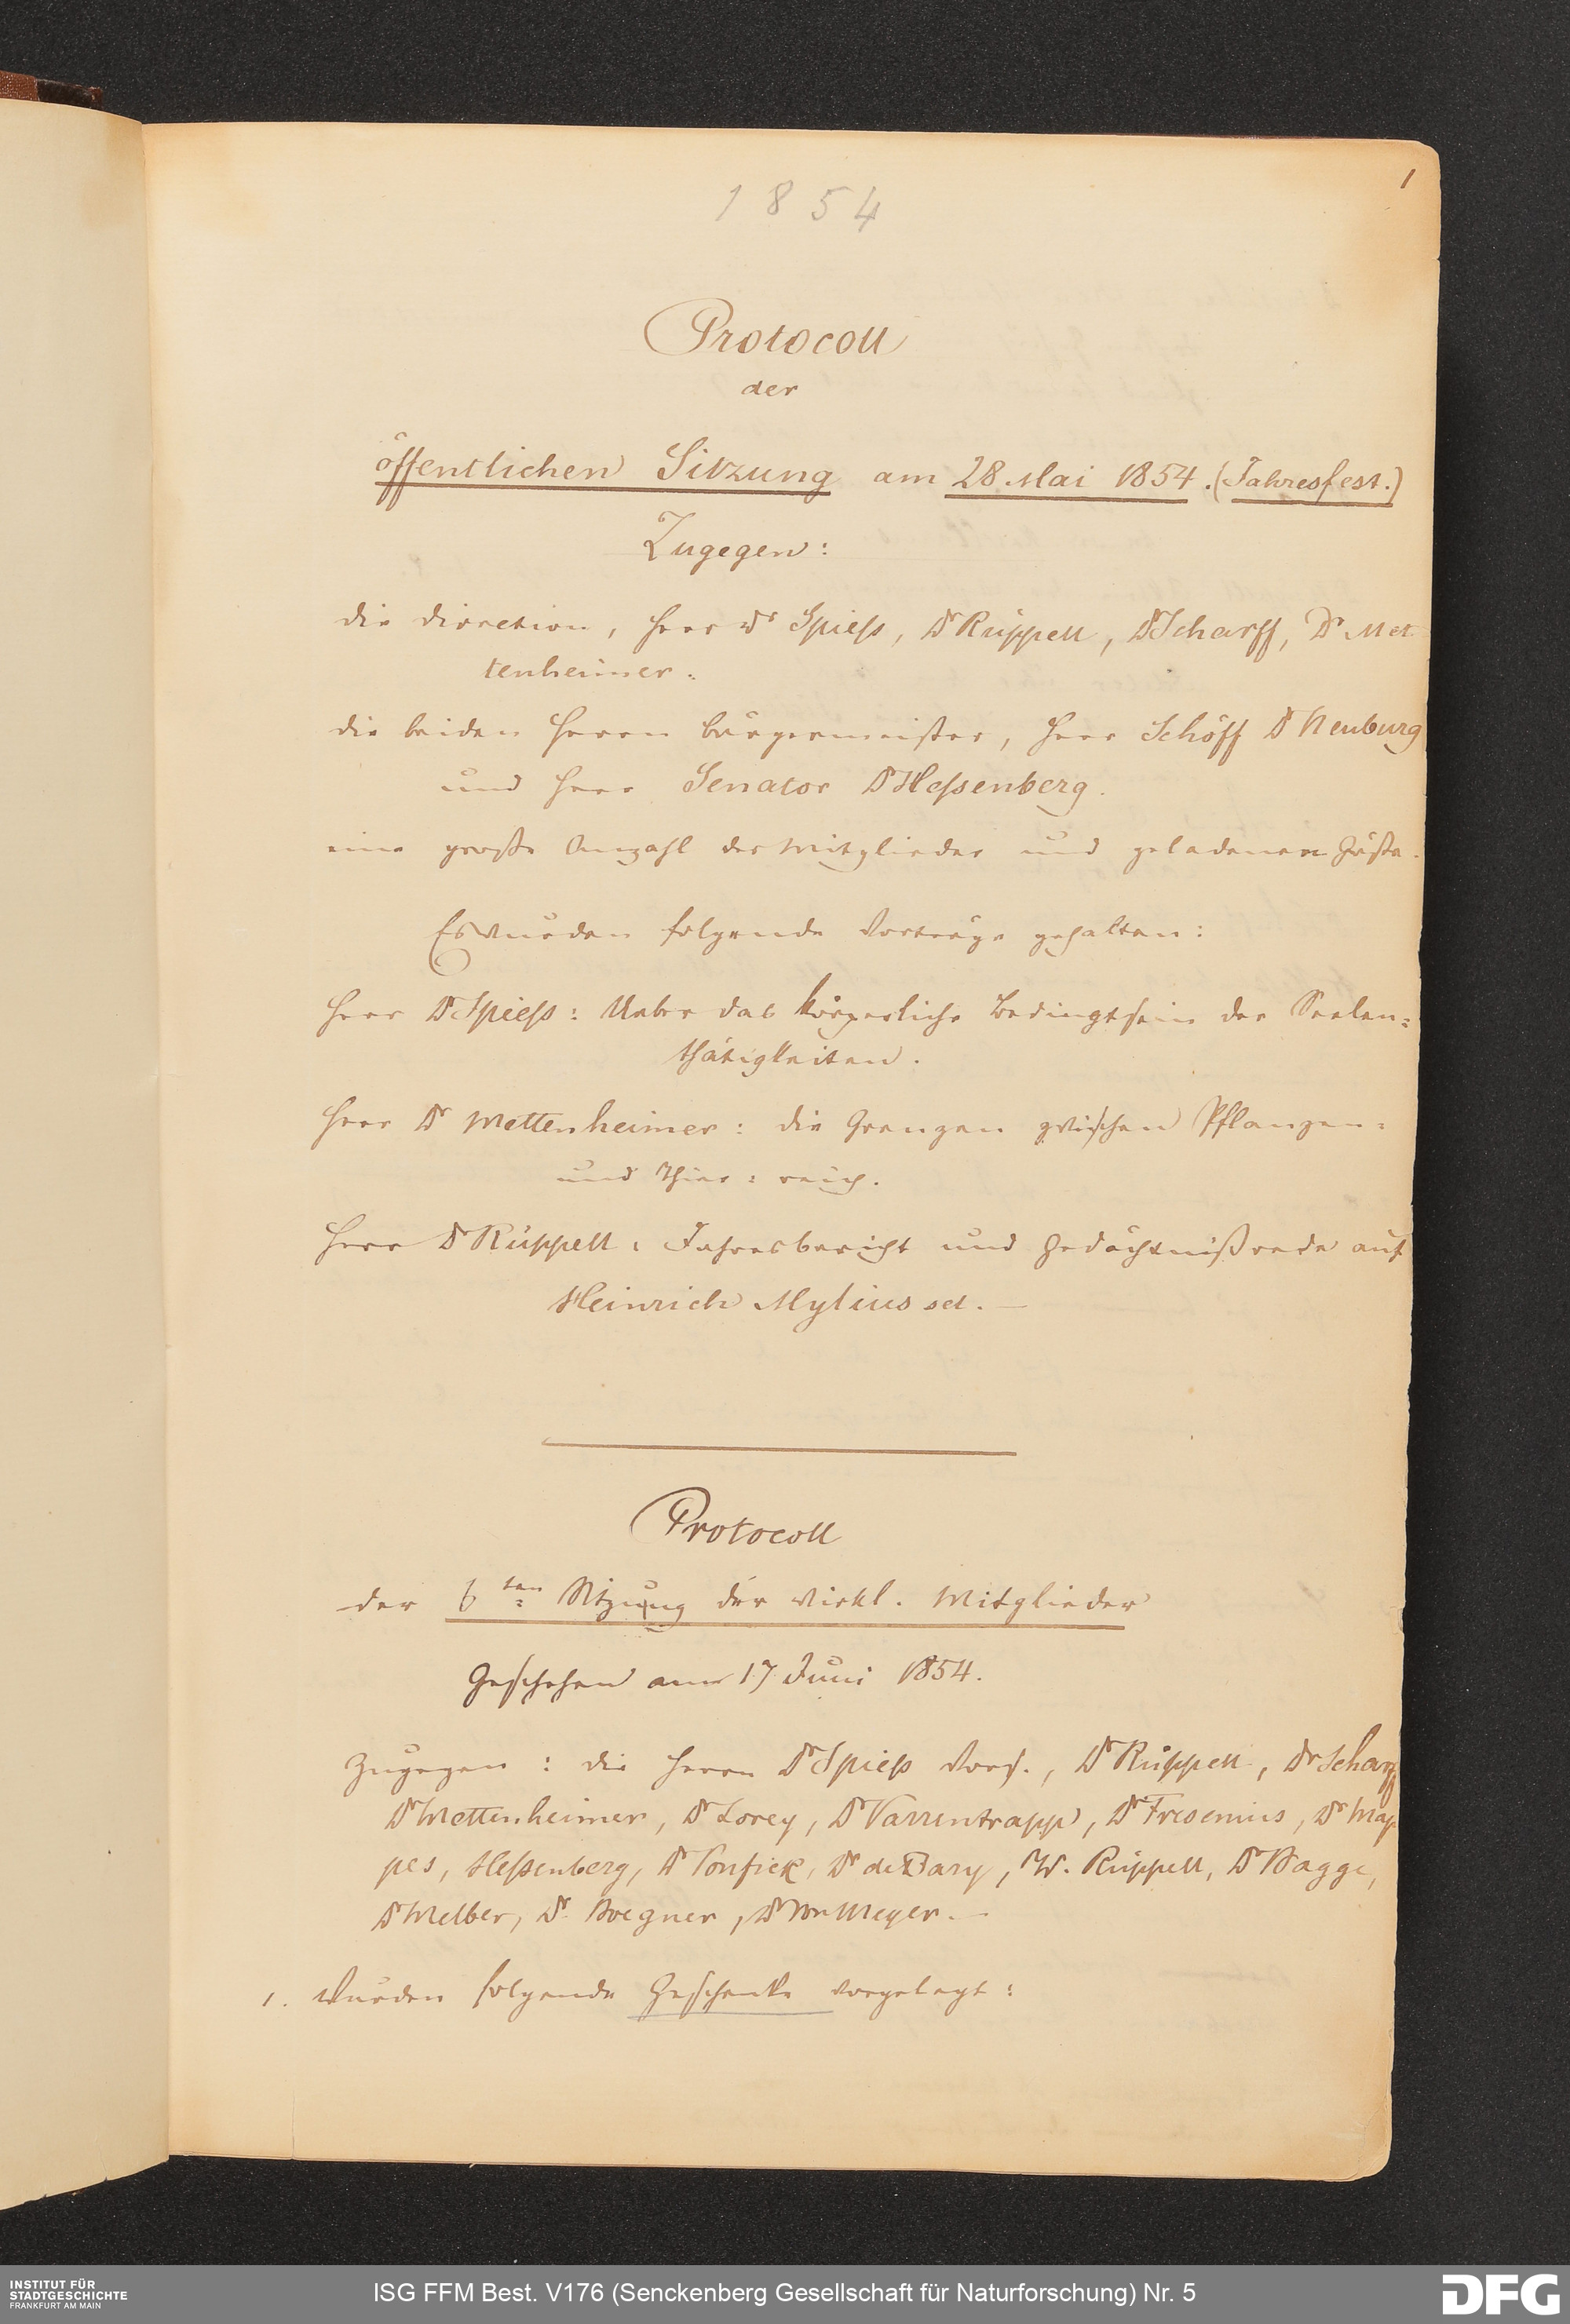 1
1854
Protocoll
der
öffentlichen Sitzung am 28. Mai 1854. (Jahresfest.)
Zugegen:
die Direction, Herr Dr Spieß, Dr Rüppell, Dr Scharff, Dr Met
tenheimer.
die beiden Herrn Bürgermeister, Herr Schöff Dr Neuburg
und Herr Senator Dr Hessenberg.
eine große Anzahl der Mitglieder und geladenen Gäste.
Es wurden folgende Vorträge gehalten:
Herr Dr Spieß: Ueber das körperliche Bedingtsein der Seelen=
thätigkeiten.
Herr Dr Mettenheimer: die Grenzen zwischen Pflanzen=
und Thier=reich.
Herr Dr Rüppell: Jahresbericht und Gedächtnißrede auf
Heinrich Mylius sel. —
Protocoll
der 6ten Sitzung der wirkl. Mitglieder
Geschehen am 17 Juni 1854.
Zugegen: die Herrn Dr Spieß Vors., Dr Rüppell, Dr Scharff
Dr Mettenheimer, Dr Lorey, Dr Varrentrapp, Dr Fresenius, Dr Map
pes, Hessenberg, Dr Ponfick, Dr de Bary, W. Rüppell, Dr Bagge,
Dr Melber, Dr. Boegner, Dr von Meyer. —
1. Wurden folgende Geschenke vorgelegt:
INSTITUT FÜR
STADTGESCHICHTE
FRANKFURT AM MAIN
ISG FFM Best. V176 (Senckenberg Gesellschaft für Naturforschung) Nr. 5
DFG